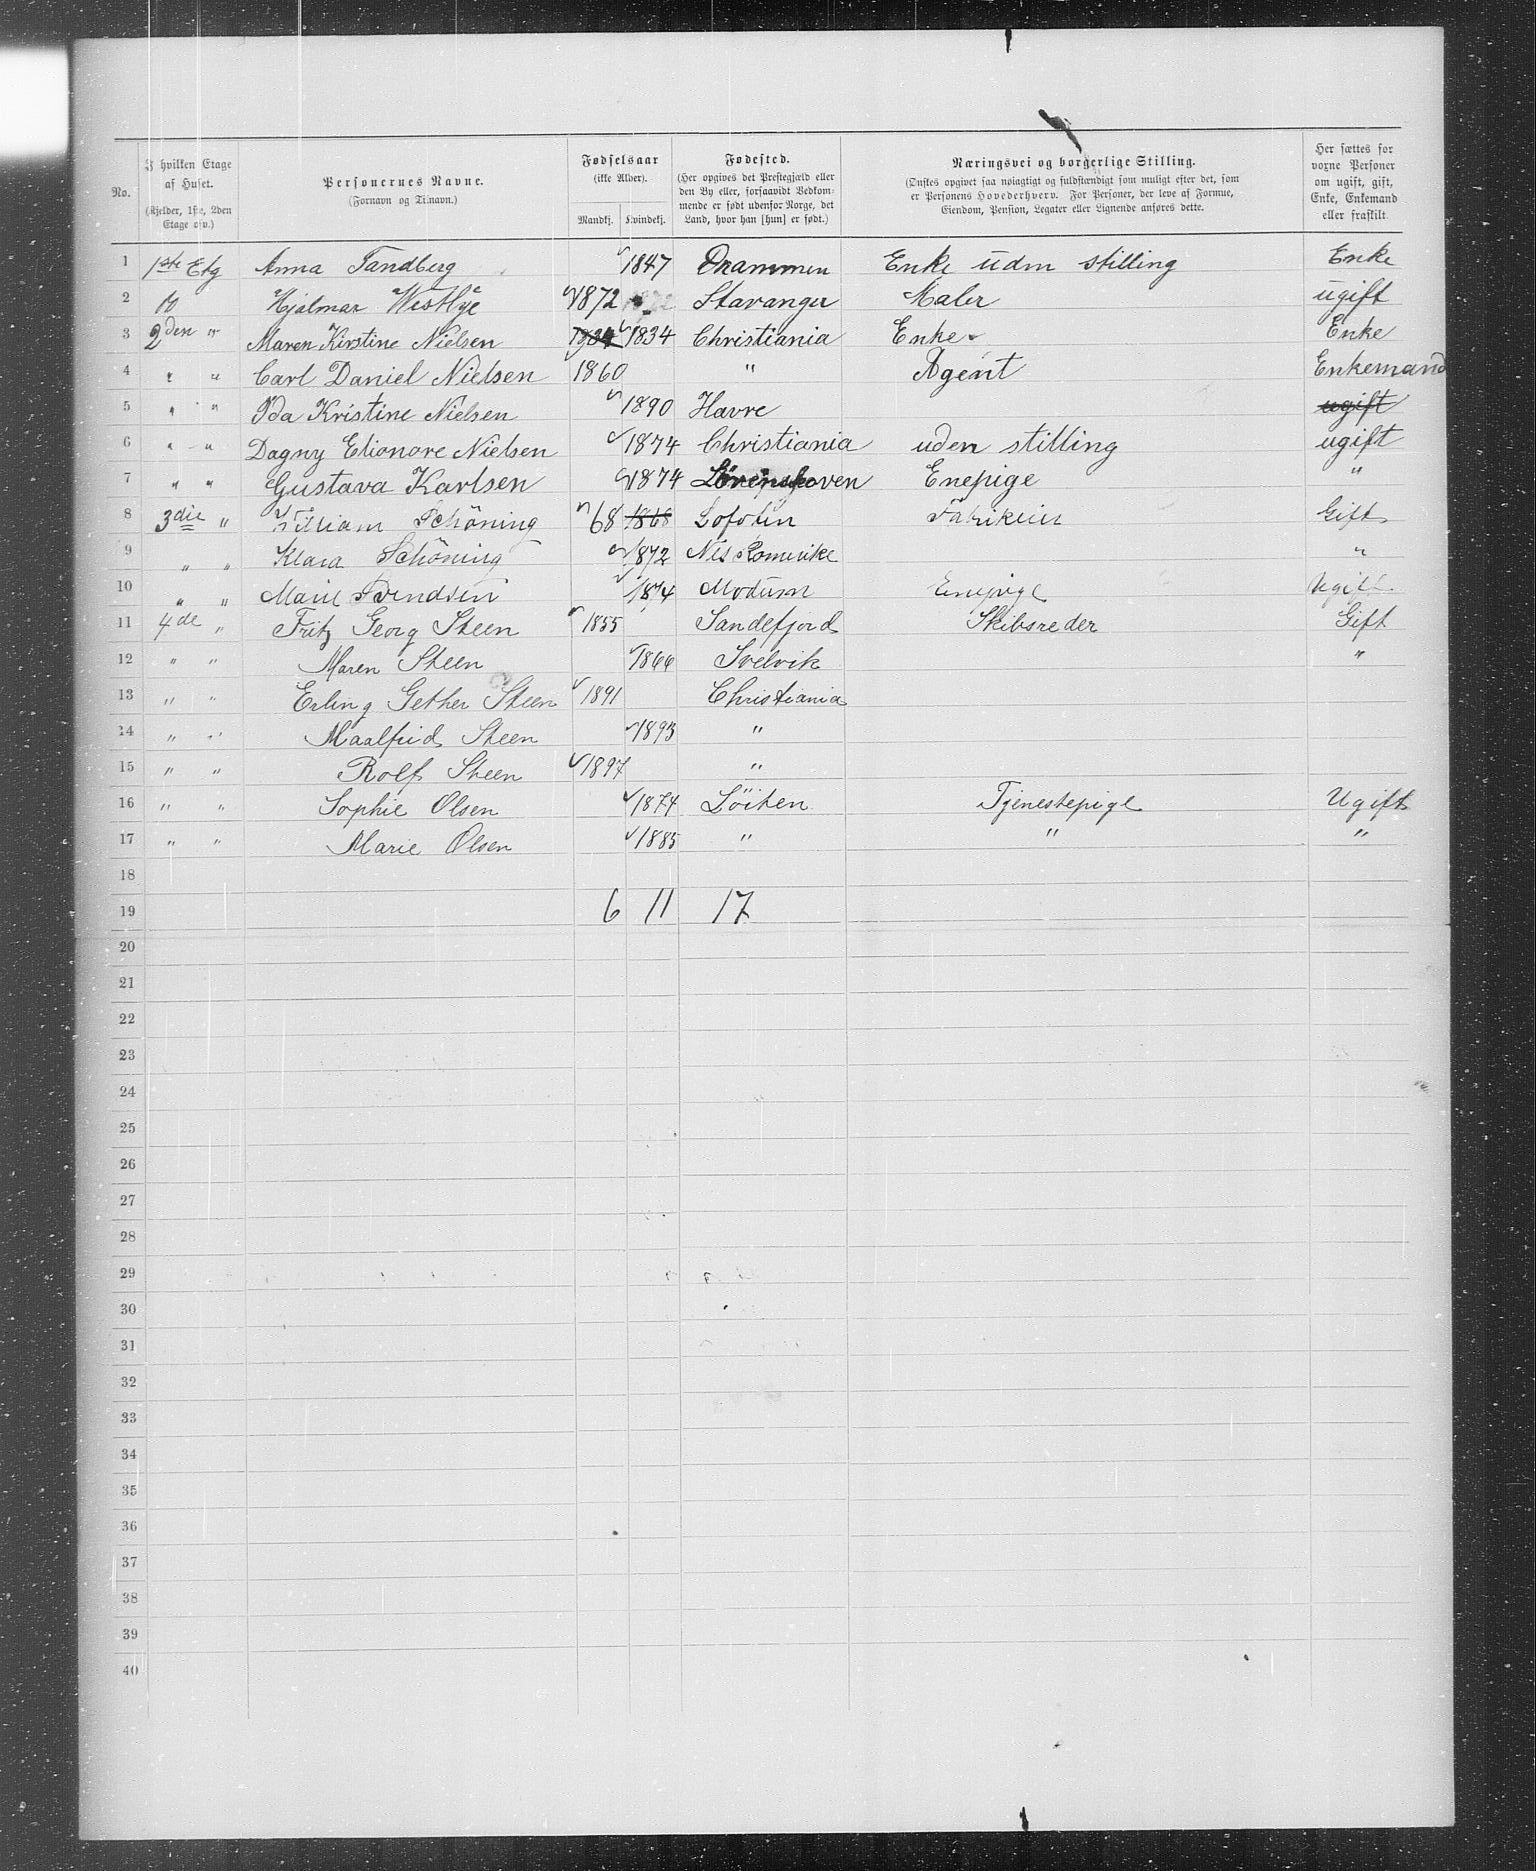 No.
I hvilken Etage af Huset.
(Kjelder, 1ste, 2den Etage osv.)
Personernes Navne.
(Fornavn og Tilnavn.)
Fødselsaar
(ikke Alder).
Mandkj. Kvindekj.
Fødested.
(Her opgives det Prestegjæld eller den By eller, forsaavidt Vedkommende er født udenfor Norge, det Land, hvor han [hun] er født.)
Næringsvei og borgerlige Stilling.
(Ønskes opgivet saa nøiagtigt og fuldstændigt som muligt efter det, som er Personens Hovederhverv. For Personer, der leve af Formue, Eiendom, Pension, Legater eller Lignende anføres dette.
Her sættes for voxne Personer om ugift, gift, Enke, Enkemand eller fraskilt.
1 1ste Etg Anna Tandberg 1847 Drammen Enke uden stilling Enke
2 Hjalmar Westlye 1872 1872 Stavanger Maler ugift
3 2den " Maren Kirstine Nielsen 1834 1834 Christiania Enke Enke
4 " " Carl Daniel Nielsen 1860 " Agent Enkemand
5 " " Ida Kristine Nielsen 1890 Havre ugift
6 " " Dagny Elionore Nielsen 1874 Christiania uden stilling ugift
7 " " Gustava Karlsen 1874 Enepige "
8 3die " William Schöning 68 1868 Lofoten Fabrikeier Gift
9 " " Klara Schöning 1872 Nes Romerike "
10 " " Marie Svendsen 1874 Modum Enepige Ugift
11 4de " Fritz Georg Steen 1855 Sandefjord Skibsreder Gift
12 " " Maren Steen 1866 Svelvik "
13 " " Erling Gether Steen 1891 Christiania
14 " " Maalfrid Steen 1893 "
15 " " Rolf Steen 1897 "
16 " " Sophie Olsen 1874 Löiten Tjenestepige Ugift
17 " " Marie Olsen 1885 " " "
18
19 6 11 17
20
21
22
23
24
25
26
27
28
29
30
31
32
33
34
35
36
37
38
39
40